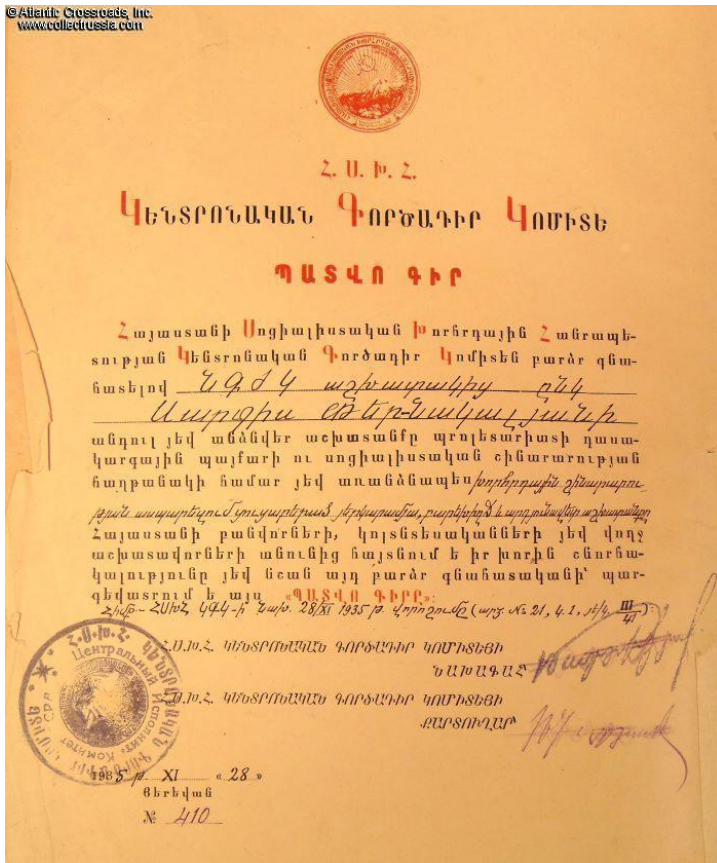 © Atlantic Crossroads, Inc.
www.collectrussia.com
Հ. Ս. Խ. Հ.
ԿԵՆՏՐՈՆԱԿԱՆ ԳՈՐԾԱԴԻՐ ԿՈՄԻՏԵ
ՊԱՏՎՈ ԳԻՐ
Հայաստանի Սոցիալիստական Խորհրդային Հանրապե-
տության Կենտրոնական Գործադիր Կոմիտեն բարձր գնա-
հատելով ՆԳԺԿ աշխատակից ընկ
Սարգիս
անդուլ յեվ անձնվեր աշխատանքը պրոլետարիատի դասա-
կարգային պայքարի ու սոցիալիստական շինարարության
հաղթանակի համար յեվ առանձնապես խորհրդային շինարարու-
թյան ասպարեզում ցուցաբերած յերկարամյա, բարեխիղճ և արդյունավետ աշխատանքը
Հայաստանի բանվորների, կոլտնտեսականների յեվ վողջ
աշխատավորների անունից հայտնում է իր խորին շնորհա-
կալությունը յեվ նշան այդ բարձր գնահատականի՝ պար-
գեվատրում է այս «ՊԱՏՎՈ ԳԻՐԸ»:
Հիմք – ՀՍԽՀ ԿԳԿ-ի Նախ. 28/XI 1935 թ. վորոշումը (արձ. № 21, կ.1, III/41):
Հ.Ս.Խ.Հ. ԿԵՆՏՐՈՆԱԿԱՆ ԳՈՐԾԱԴԻՐ ԿՈՄԻՏԵՅԻ
ՆԱԽԱԳԱՀ
Հ.Ս.Խ.Հ. ԿԵՆՏՐՈՆԱԿԱՆ ԳՈՐԾԱԴԻՐ ԿՈՄԻՏԵՅԻ
ՔԱՐՏՈՒՂԱՐ
Հ.Ս.Խ.Հ. ԿԵՆՏՐՈՆԱԿԱՆ ԳՈՐԾԱԴԻՐ ԿՈՄԻՏԵ
Центральный Исполнит. Комитет
1935 թ. XI «28»
Յերեվան
№ 410